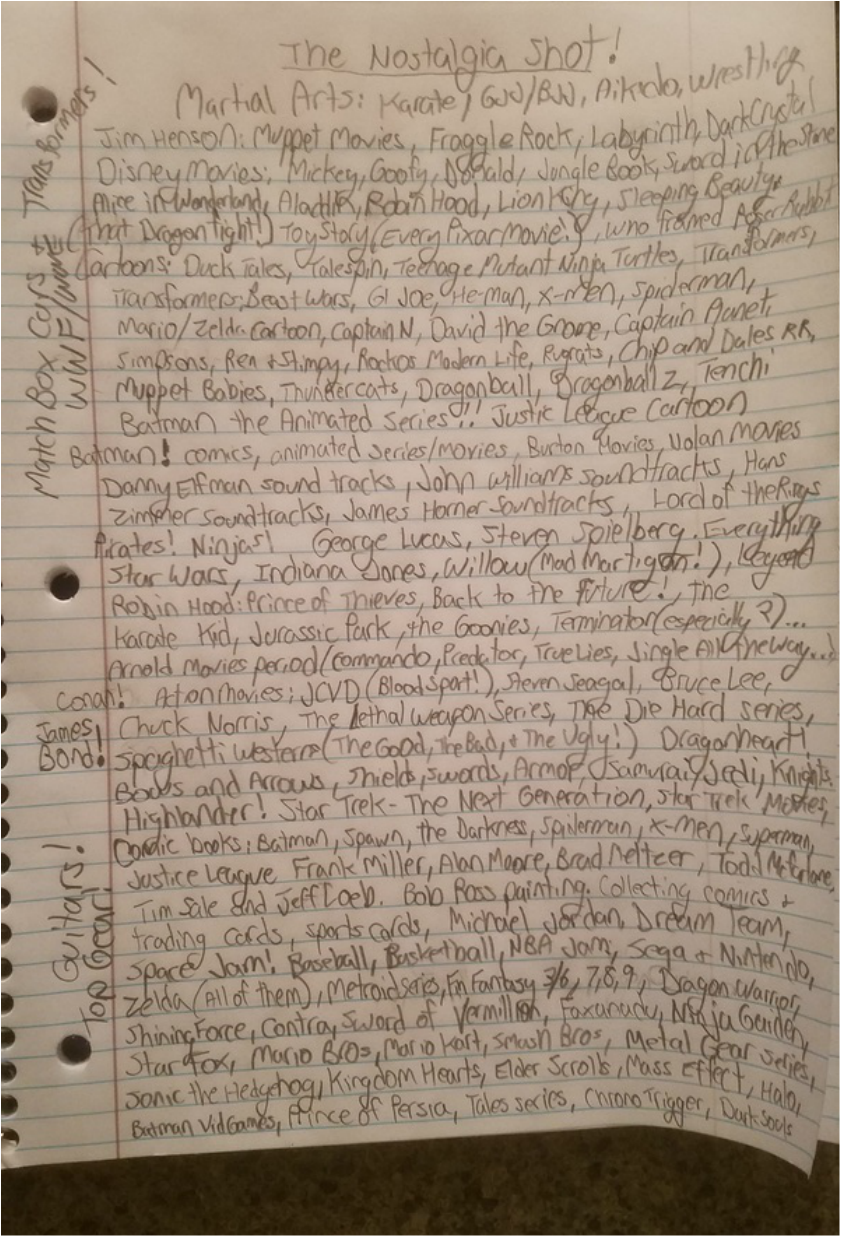 The Nostalgia Shot!
Martial Arts: Karate, GJJ/BJJ, Aikido, Wrestling
Jim Henson: Muppet Movies, Fraggle Rock, Labyrinth, Dark Crystal
Disney Movies; Mickey, Goofy, Donald, Jungle Book, Sword in the Stone
Alice in Wonderland, Aladdin, Robin Hood, Lion King, Sleeping Beauty
(that Dragon fight!) Toy Story (Every Pixar Movie!), who framed Roger Rabbit
Cartoons: Duck Tales, Talespin, Teenage Mutant Ninja Turtles, Transformers,
Transformers; Beast Wars, GI Joe, He-man, X-Men, Spiderman,
Mario/Zelda Cartoon, Captain N, David the Gnome, Captain Planet,
Simpsons, Ren + Stimpy, Rockos Modern Life, Rugrats, Chip and Dales RR,
Muppet Babies, Thundercats, Dragonball, Dragonball Z, Tenchi
Batman the Animated Series!!! Justic League Cartoon
Batman! comics, animated series/movies, Burton Movies, Nolan Movies
Danny Elfman sound tracks, John Williams soundtracks, Hans
Zimmer soundtracks, James Horner soundtracks, Lord of the Rings
Pirates! Ninjas! George Lucas, Steven Spielberg. Everything
Star Wars, Indiana Jones, Willow (Mad Martigan!), Legend
Robin Hood: Prince of Thieves, Back to the Future!, The
Karate Kid, Jurassic Park, the Goonies, Terminator (especially 2)...
Arnold movies period (Commando, Predator, True Lies, Jingle All the way...)
Conan! Action Movies; JCVD (Bloodsport!), Steven Seagal, Bruce Lee,
Chuck Norris, The Lethal Weapon Series, The Die Hard series,
James Bond!
Spaghetti Westerns (The Good, The Bad, + The Ugly!) Dragonheart!
Bows and Arrows, Shields, Swords, Armor, Samurai/Jedi, Knights.
Highlander! Star Trek - The Next Generation, Star Trek Movies,
Comic books; Batman, Spawn, the Darkness, Spiderman, X-men, Superman,
Justice League Frank Miller, Alan Moore, Brad Meltzer, Todd McFarlane,
Tim Sale and Jeff Loeb. Bob Ross painting. Collecting comics +
trading cards, sports cards, Michael Jordan, Dream Team,
Space Jam! Baseball, Basketball, NBA Jam, Sega + Nintendo,
Zelda (All of them), Metroid series, Fin Fantasy 3/6, 7, 8, 9, Dragon Warrior,
Shining Force, Contra, Sword of Vermillion, Faxanadu, Ninja Gaiden,
Star Fox, Mario Bros, Mario Kart, Smash Bros, Metal Gear series,
Sonic the Hedgehog, Kingdom Hearts, Elder Scrolls, Mass Effect, Halo,
Batman Vid Games, Prince of Persia, Tales series, Chrono Trigger, Dark Souls
Match Box Cars + Transformers!
WWF/
Guitars!
Top Gear!